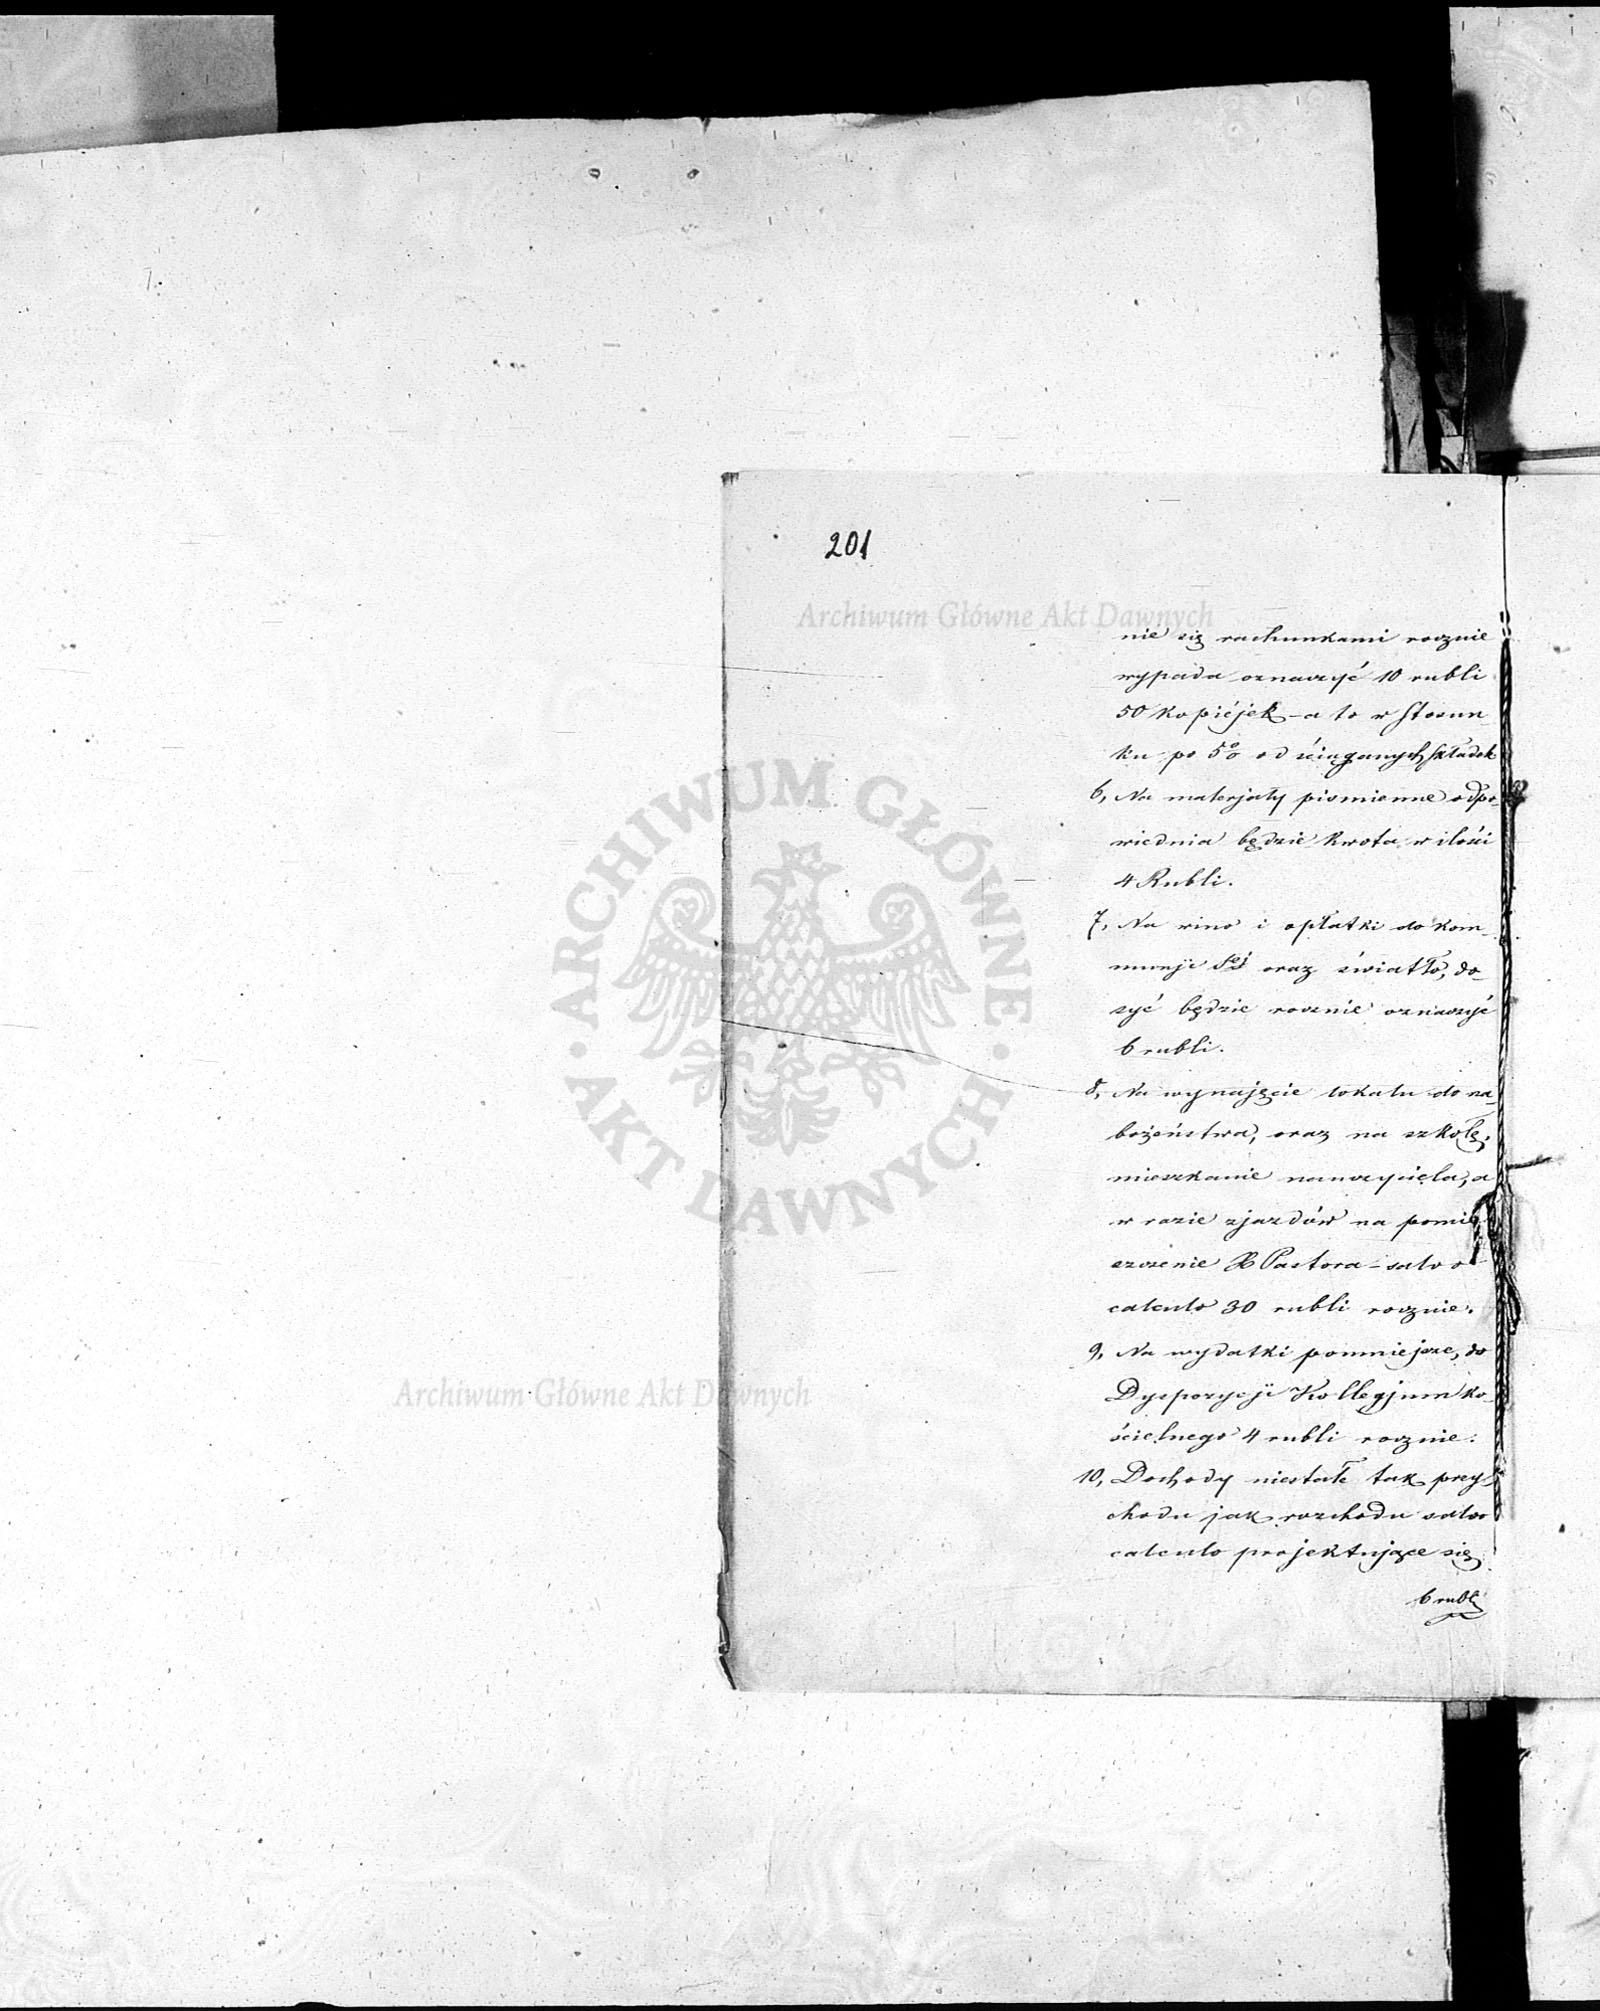 201
Archiwum Główne Akt Dawnych
nie się rachunkami rocznie
wypada oznaczyć 10 rubli
50 kopiéjek – a to w stosun-
ku po 5% od ściąganych składek
6, Na materjały piśmienne odpo-
wiednia będzie kwota w ilości
4 Rubli.
7, Na wino i opłatki do kom-
munji Sej oraz światło, do-
syć będzie rocznie oznaczyć
6 rubli.
8, Na wynajęcie lokalu do na-
bożeństwa, oraz na szkołę,
mieszkanie nauczyciela, a
w razie zjazdów na pomie-
szczenie X Pastora – salvo
calculo 30 rubli rocznie.
9, Na wydatki pomniejsze, do
Dyspozycji Kollegjum ko-
ścielnego 4 rubli rocznie.
10, Dochody niestałe tak przy-
chodu jak rozchodu salvo
calculo projektujące się
6 rubli
ARCHIWUM GŁÓWNE
AKT DAWNYCH
Archiwum Główne Akt Dawnych